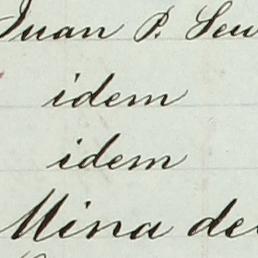 Juan P. Seu
idem
idem
Mina de